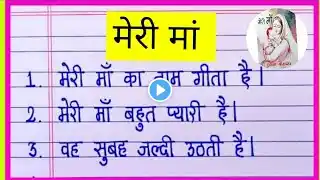 मेरी मां
1. मेरी माँ का नाम गीता है।
2. मेरी माँ बहुत प्यारी है।
3. वह सुबह जल्दी उठती है।